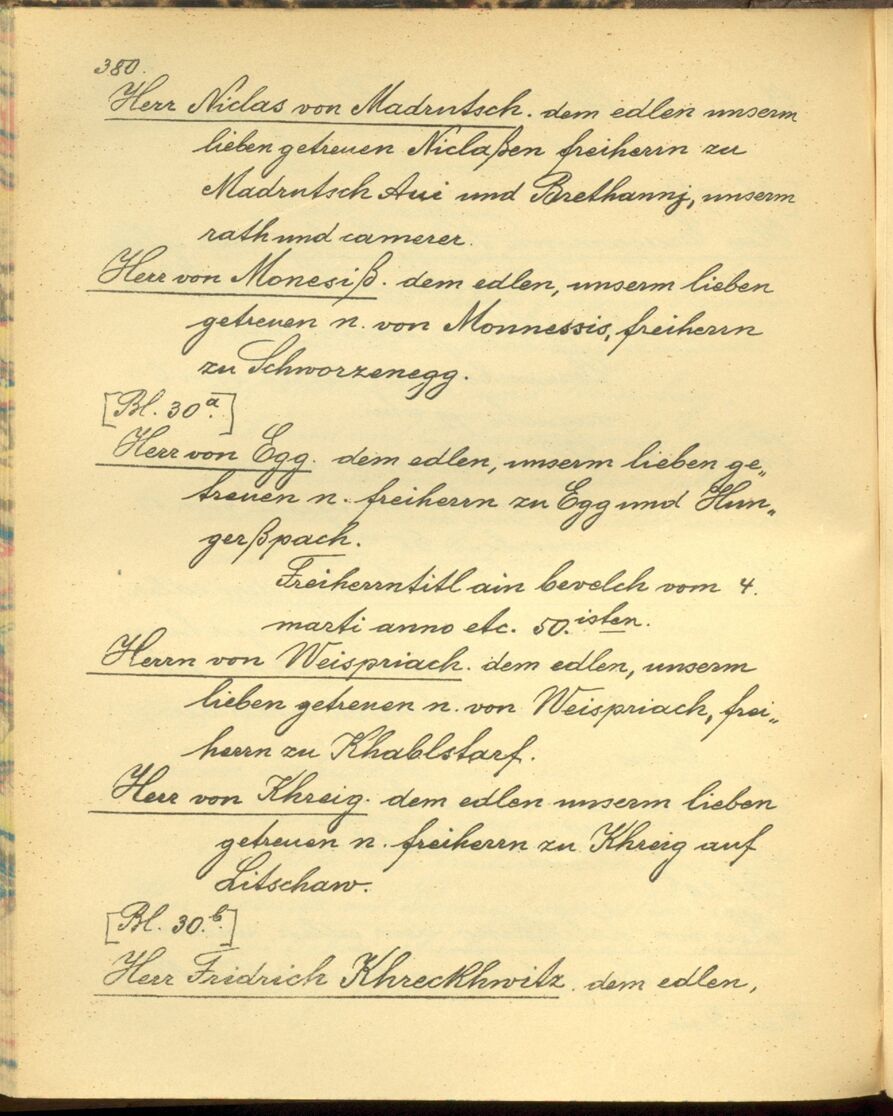 380.
Herr Niclas von Madrutsch. dem edlen unserm
lieben getreuen Niclaßen freiherrn zu
Madrutsch Aui und Brethannj, unserm
rath und camerer.
Herr von Monesiß. dem edlen, unserm lieben
getreuen n. von Monnessis, freiherrn
zu Schworzenegg.
[Bl. 30a.]
Herr von Egg. dem edlen, unserm lieben ge„
treuen n. freiherrn zu Egg und Hun„
gerßpach.
Freiherrntitl ain bevelch vom 4.
marti anno etc. 50.isten.
Herrn von Weispriach. dem edlen, unserm
lieben getreuen n. von Weispriach, frei„
herrn zu Khablstarf.
Herr von Khreig. dem edlen unserm lieben
getreuen n. freiherrn zu Khreig auf
Litschaw.
[Bl. 30.b.]
Herr Fridrich Khreckhwitz. dem edlen,